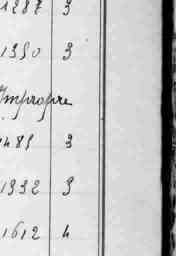 1287 3
1350 3
Impropre
1485 3
1932 3
1612 4